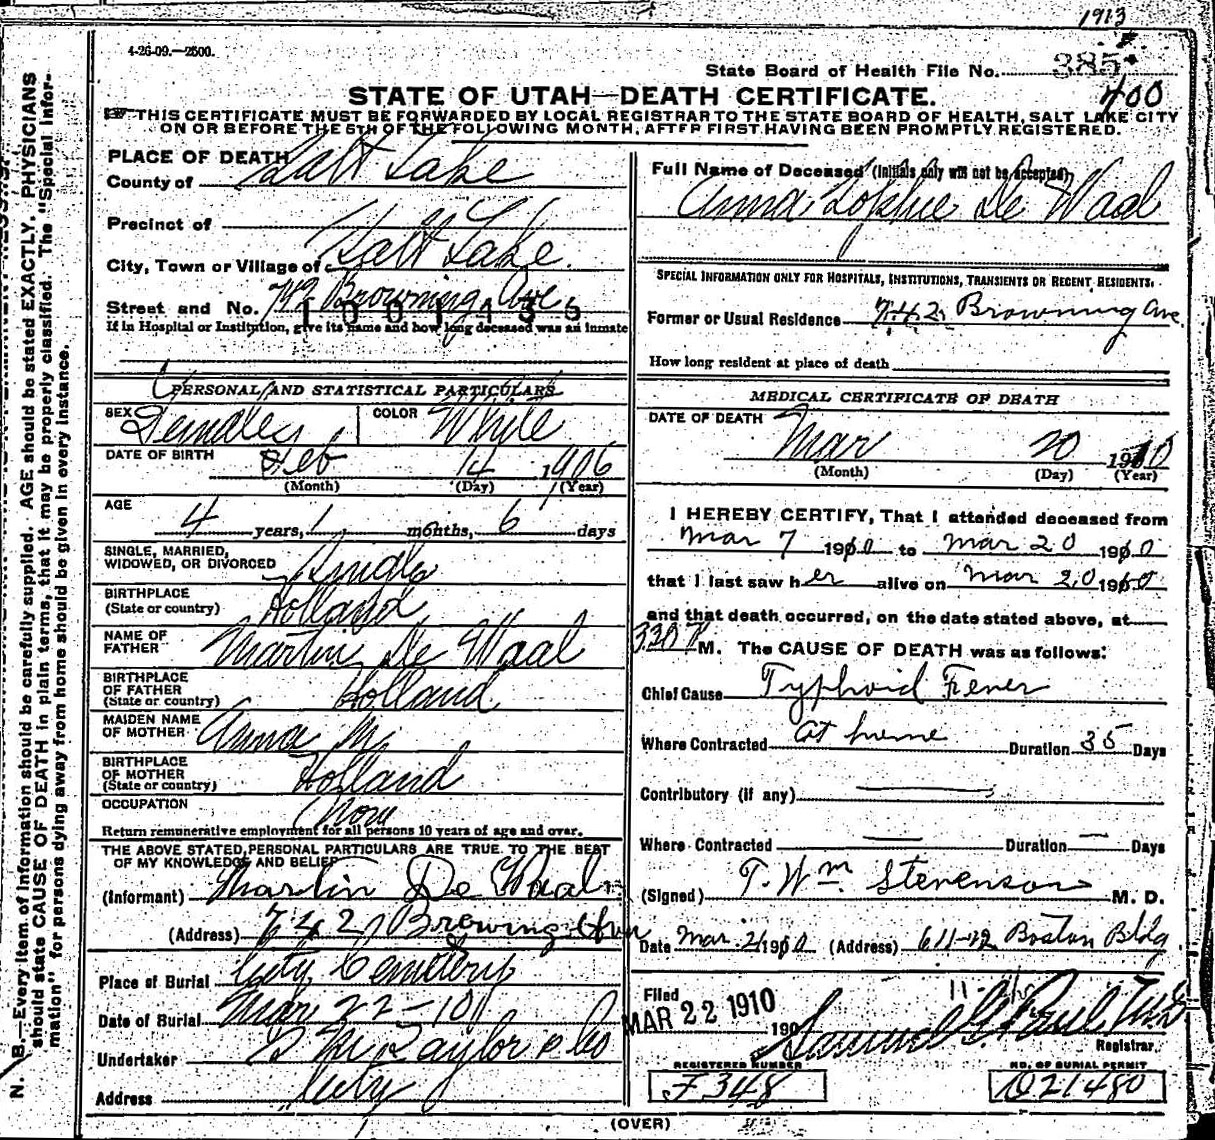 1913
4-26-09.—2500.
State Board of Health File No. 385
400
STATE OF UTAH—DEATH CERTIFICATE.
THIS CERTIFICATE MUST BE FORWARDED BY LOCAL REGISTRAR TO THE STATE BOARD OF HEALTH, SALT LAKE CITY
ON OR BEFORE THE 5TH OF THE FOLLOWING MONTH, AFTER FIRST HAVING BEEN PROMPTLY REGISTERED.
PLACE OF DEATH
County of Salt Lake
Precinct of
City, Town or Village of Salt Lake.
Street and No. 742 Browning Ave
1001435
If in Hospital or Institution, give its name and how long deceased was an inmate
PERSONAL AND STATISTICAL PARTICULARS
SEX Female COLOR White
DATE OF BIRTH Feb 14 1906
(Month) (Day) (Year)
AGE
4 years, 1 months, 6 days
SINGLE, MARRIED,
WIDOWED, OR DIVORCED Single
BIRTHPLACE
(State or country) Holland
NAME OF
FATHER Martin De Waal
BIRTHPLACE
OF FATHER
(State or country) Holland
MAIDEN NAME
OF MOTHER Anna M.
BIRTHPLACE
OF MOTHER
(State or country) Holland
OCCUPATION None
Return remunerative employment for all persons 10 years of age and over.
THE ABOVE STATED PERSONAL PARTICULARS ARE TRUE TO THE BEST
OF MY KNOWLEDGE AND BELIEF
(Informant) Martin De Waal
(Address) 742 Browning Ave
Place of Burial City Cemetery
Date of Burial Mar 22-10
Undertaker Taylor & Co
Address City
Full Name of Deceased (Initials only will not be accepted)
Anna Sophie De Waal
SPECIAL INFORMATION ONLY FOR HOSPITALS, INSTITUTIONS, TRANSIENTS OR RECENT RESIDENTS.
Former or Usual Residence 742 Browning Ave.
How long resident at place of death
MEDICAL CERTIFICATE OF DEATH
DATE OF DEATH
Mar 20 1910
(Month) (Day) (Year)
I HEREBY CERTIFY, That I attended deceased from
Mar 7 1910 to Mar 20 1910
that I last saw her alive on Mar 20 1910
and that death occurred, on the date stated above, at
M. The CAUSE OF DEATH was as follows:
Chief Cause Typhoid Fever
Where Contracted at home Duration 35 Days
Contributory (if any)
Where Contracted Duration Days
(Signed) T. Wm. Stevenson M. D.
Date Mar. 21 1910 (Address) 611-12 Boston Bldg
Filed
MAR 22 1910 190
Samuel G. Paul, M.D.
Registrar.
REGISTERED NUMBER
F 348
NO. OF BURIAL PERMIT
021480
(OVER)
N. B.—Every item of information should be carefully supplied. AGE should be stated EXACTLY. PHYSICIANS
should state CAUSE OF DEATH in plain terms, that it may be properly classified. The "Special Infor-
mation" for persons dying away from home should be given in every instance.